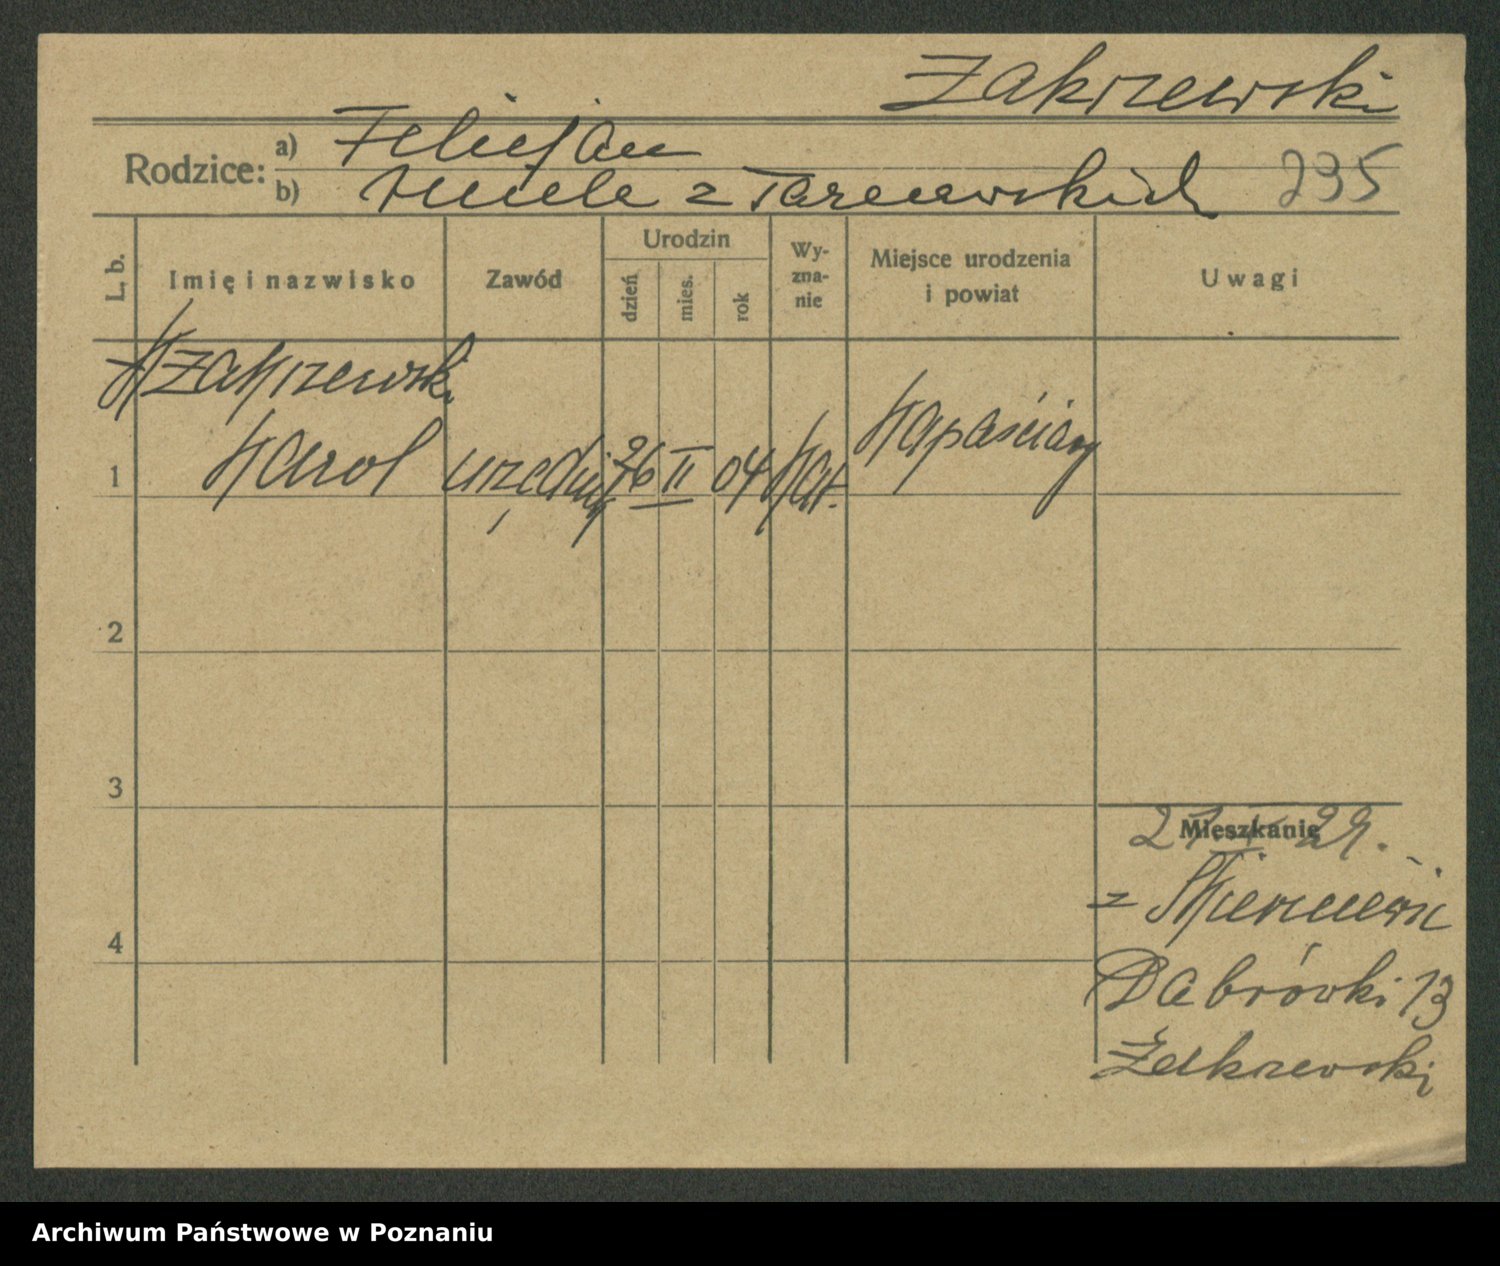 Zakrzewski
Rodzice: a) Felicjan
b) z Tarnawskich 235
L. b. Imię i nazwisko Zawód Urodzin dzień mies. rok Wyznanie Miejsce urodzenia i powiat Uwagi
Zakrzewski
1 Karol urzędnik 26 II 04 kat.
2
3
Mieszkanie
29.
z Skierniewic
4
Dąbrówki 13
Zakrzewski
Archiwum Państwowe w Poznaniu